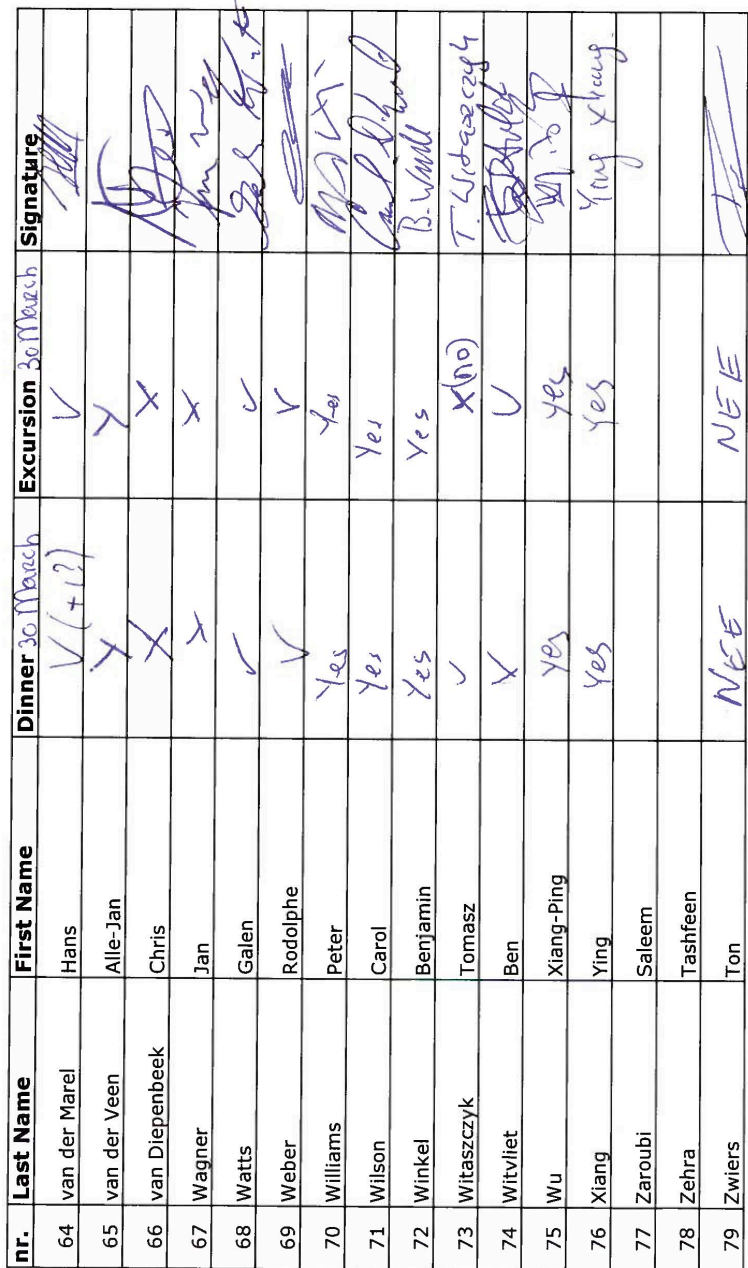 nr. Last Name First Name Dinner 30 March Excursion 30 March Signature
64 van der Marel Hans V (+1?) V
65 van der Veen Alle-Jan X X
66 van Diepenbeek Chris X X
67 Wagner Jan X X
68 Watts Galen V V
69 Weber Rodolphe V V
70 Williams Peter Yes Yes
71 Wilson Carol Yes Yes
72 Winkel Benjamin Yes Yes B. Winkel
73 Witaszczyk Tomasz V X (no) T. Witaszczyk
74 Witvliet Ben X V
75 Wu Xiang-Ping yes yes
76 Xiang Ying yes yes Ying Xiang
77 Zaroubi Saleem
78 Zehra Tashfeen
79 Zwiers Ton NEE NEE